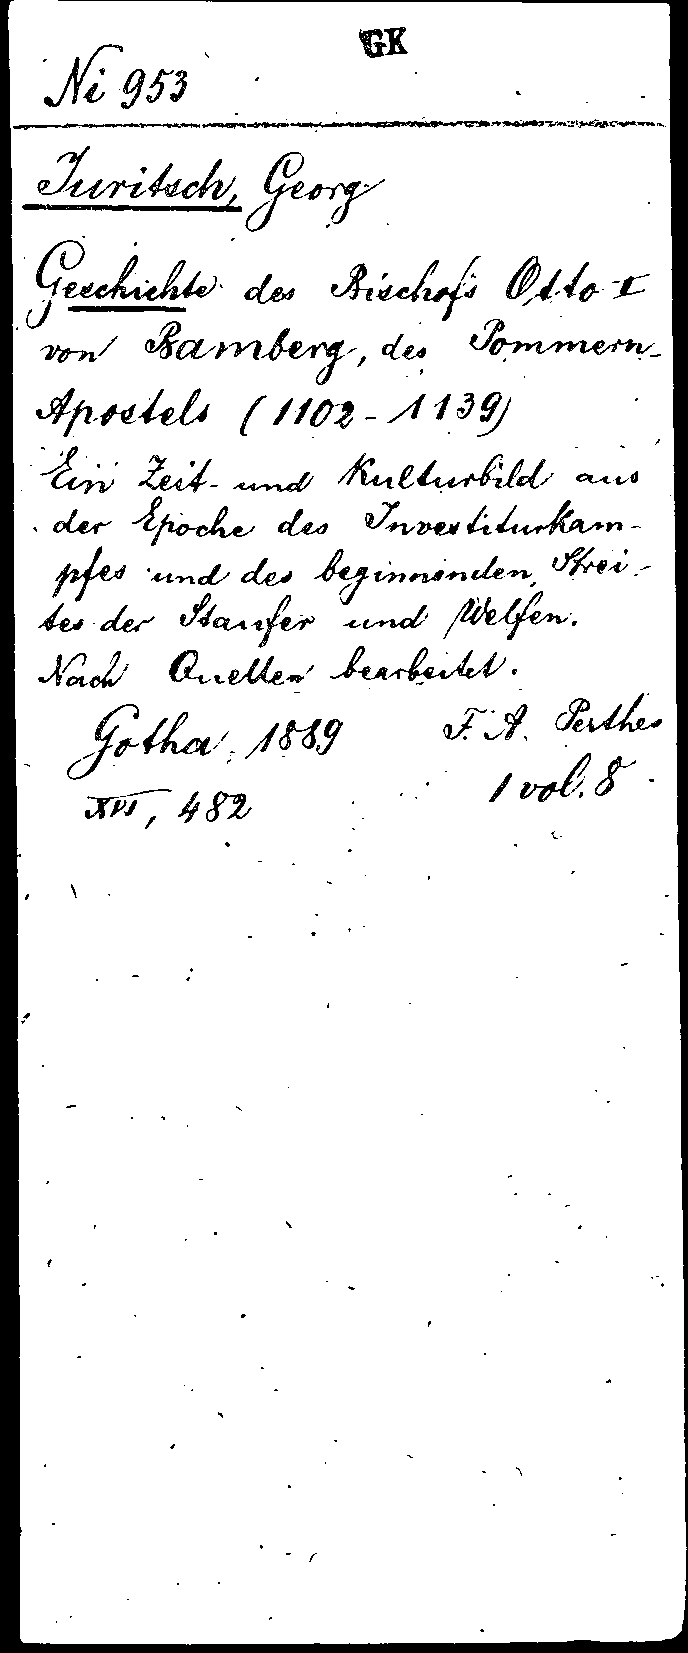 GK
Ni 953
Juritsch, Georg
Geschichte des Bischofs Otto I
von Bamberg, des Pommern-
Apostels (1102-1139)
Ein Zeit- und Kulturbild aus
der Epoche des Investiturkam-
pfes und des beginnenden Strei-
tes der Staufer und Welfen.
Nach Quellen bearbeitet.
Gotha, 1889 F. A. Perthes
XVI, 482 1 vol. 8